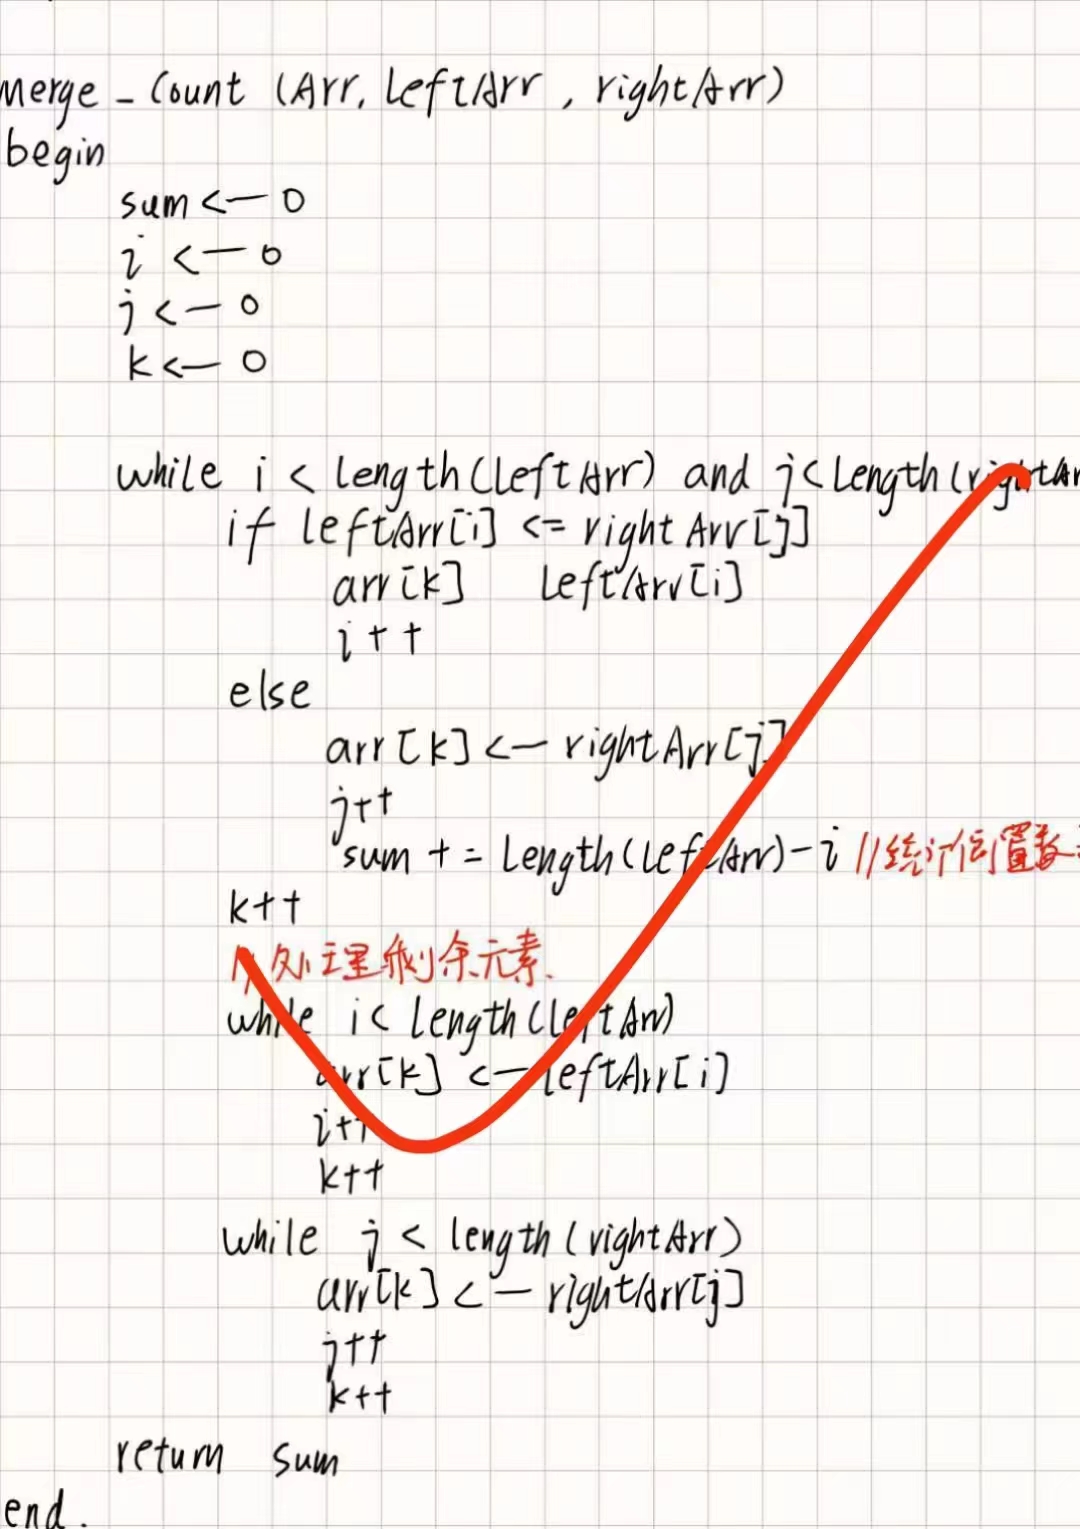 merge_Count (Arr, leftArr, rightArr)
begin
sum <— 0
i <— 0
j <— 0
k <— 0
while i < length(leftArr) and j < length(rightAr
if leftArr[i] <= rightArr[j]
arr[k] leftArr[i]
i++
else
arr[k] <— rightArr[j]
j++
sum += length(leftArr) - i //统计位置数
k++
// 处理剩余元素.
while i < length(leftArr)
arr[k] <— leftArr[i]
i++
k++
while j < length(rightArr)
arr[k] <— rightArr[j]
j++
k++
return sum
end.